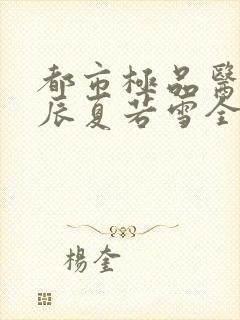 都市極品醫
辰夏若雪全
楊奎